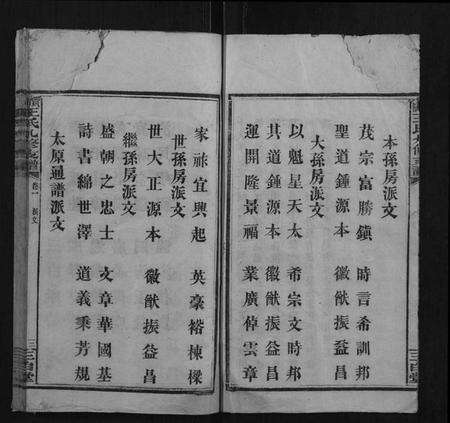 本孫房派文
茂宗富勝鎮　時言希訓邦
聖道鍾源本　徽猷振益昌
大孫房派文
以魁星天太　希宗文時邦
其道鍾源本　徽猷振益昌
運開隆景福　業廣倬雲章
家祚宜興起　英豪裕棟樑
世孫房派文
世大正源本　徽猷振益昌
繼孫房派文
盛朝之忠士　文章華國基
詩書綿世澤　道義秉芳規
太原通譜派文
王氏九修支譜
卷一
派文
三
三自堂
三自堂